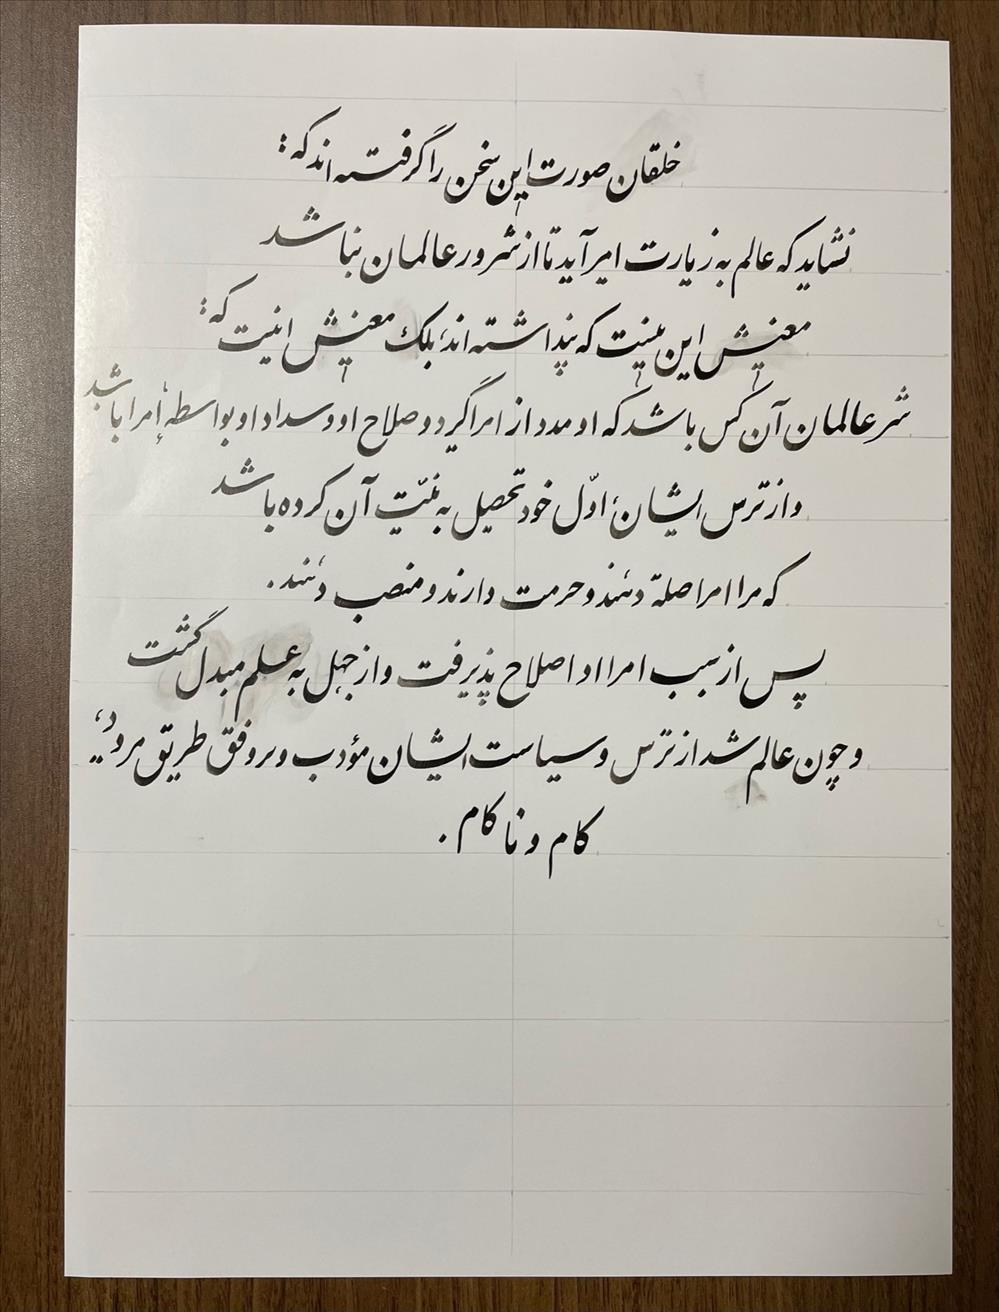 خلقان صورت این سخن را گرفته اند که :
نشاید که عالم به زیارت امیر آید تا از شرور عالمان نباشد
معنیش این نیست که پنداشته اند، بلک معنیش اینست که :
شر عالمان آن کس باشد که او مدد از امرا گیرد و صلاح او و سداد او بواسطهٔ أمرا باشد
و از ترس ایشان، اوّل خود تحصیل به نیّت آن کرده باشد
که مرا امرا صله دهند و حرمت دارند و منصب دهند .
پس از سبب امرا او اصلاح پذیرفت و از جهل به علم مبدل گشت
و چون عالم شد از ترس و سیاست ایشان مؤدب و بر وفق طریق میرود،
کام و ناکام .